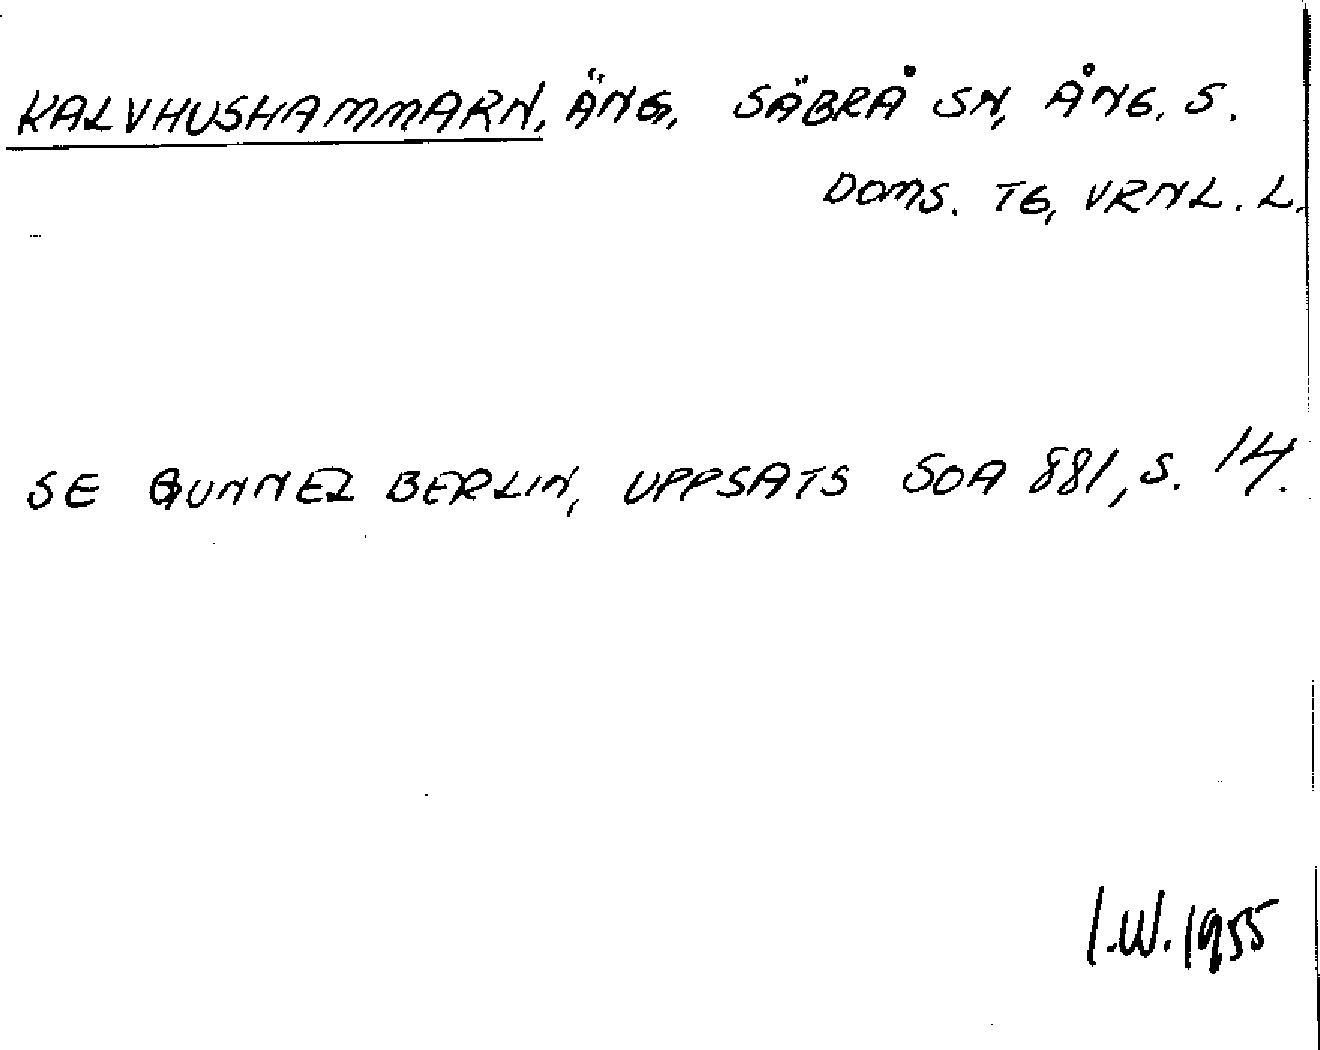 KALVHUSHAMMARN, ÄNG, SÄBRÅ SN, ÅNG. S.
DOMS. TG, VRNL. L.
SE GUNNEL BERLIN, UPPSATS SOA 881, S. 14.
I.W. 1955